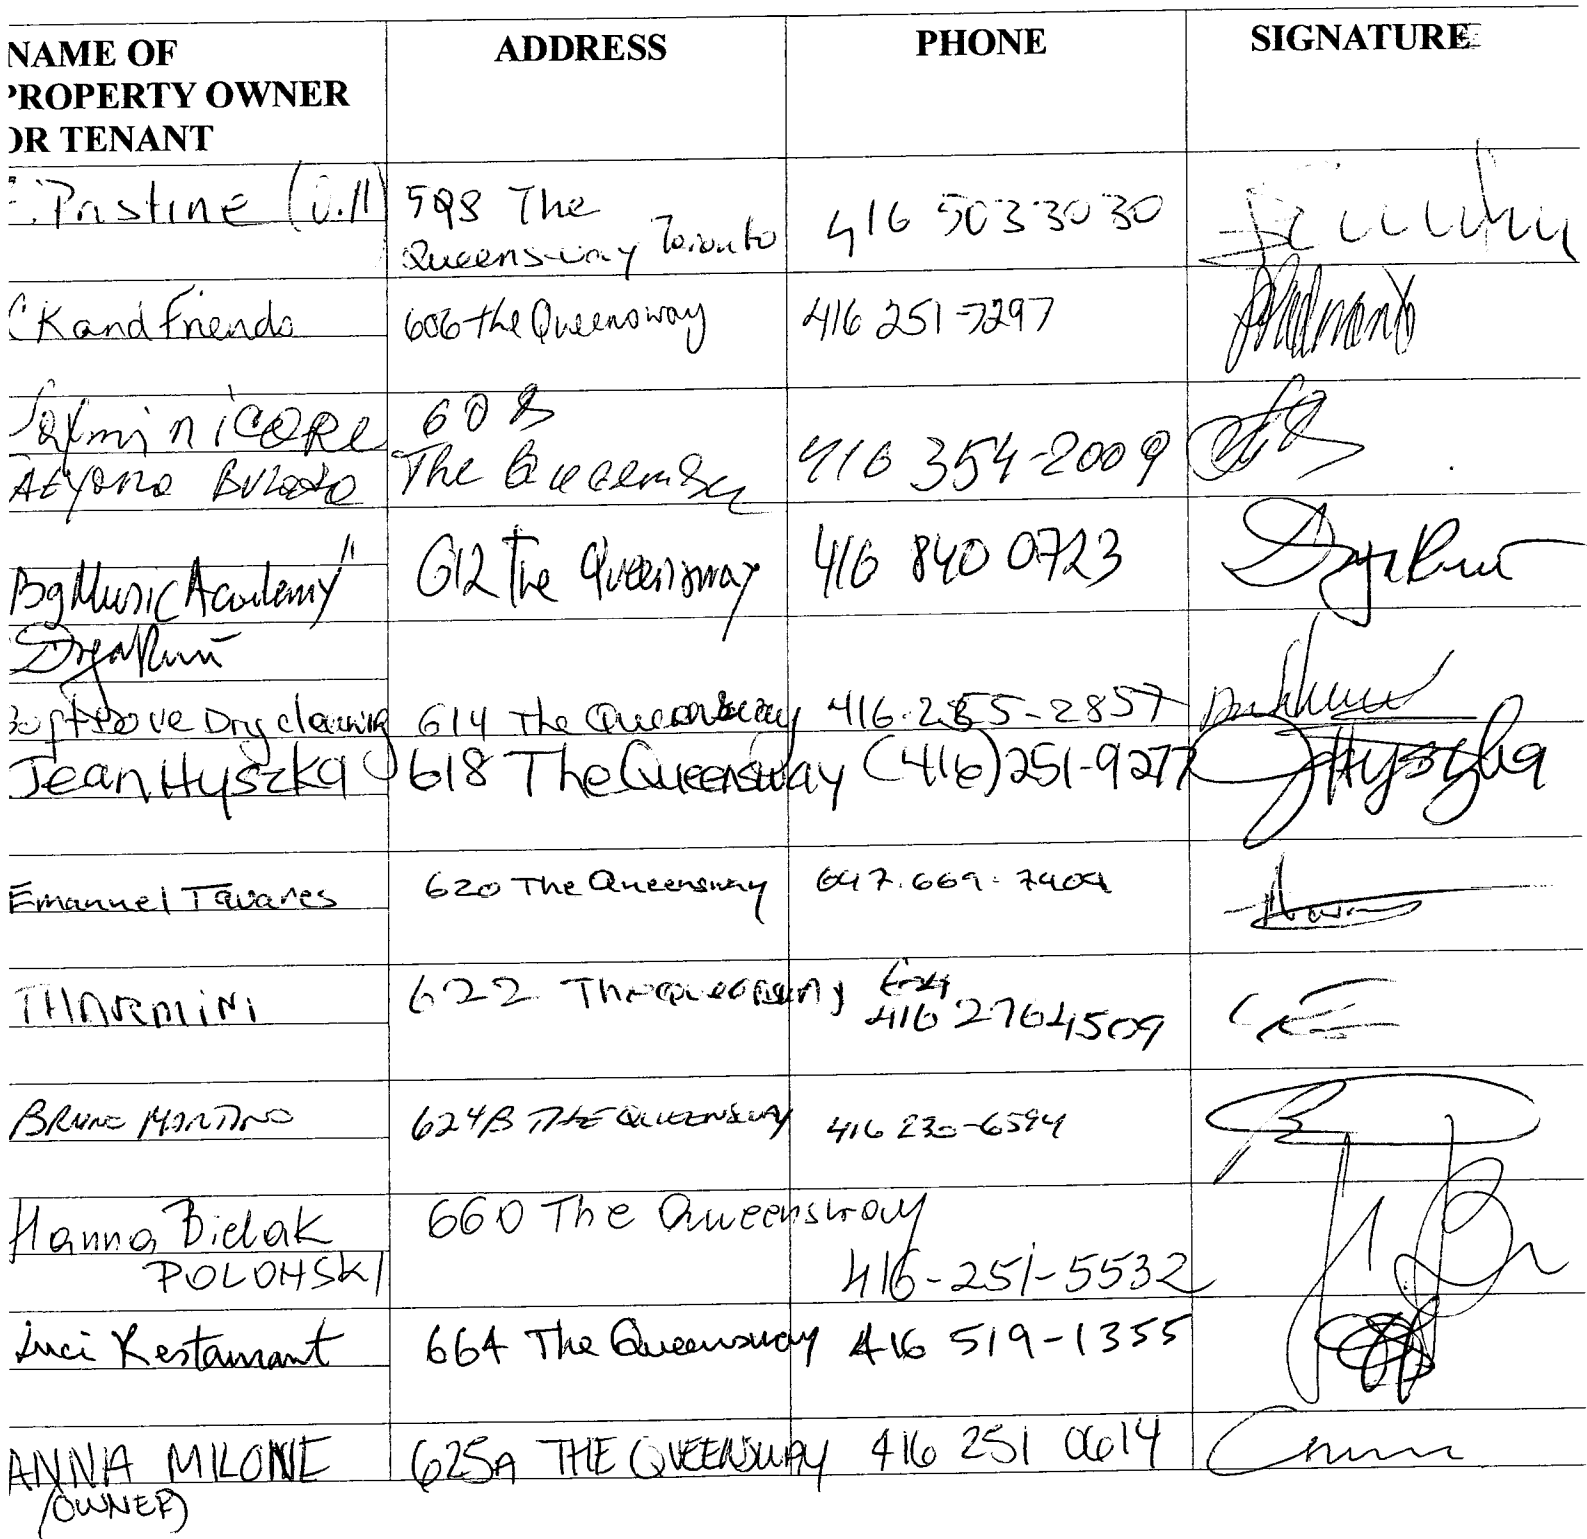 NAME OF PROPERTY OWNER OR TENANT ADDRESS PHONE SIGNATURE
Pristine 598 The Queensway Toronto 416 503 3030
CK and Friends 606 the Queensway 416 251-7297
608 The 416 354-2009
Bg Music Academy" 612 The Queensway 416 840 0723
Dry cleaning 614 The Queensway 416-255-2857
Jean Hyszka 618 The Queensway (416)251-9277 JHyszka
Emanuel Tavares 620 The Queensway 647.669.7409
622 The Queensway 416 2764509
BRUNO MARTINO 624B THE QUEENSWAY 416 230-6594
Hanna Bielak 660 The Queensway
POLOHSKI 416-251-5532
Luci Restaurant 664 The Queensway 416 519-1355
ANNA MILONE 625A THE QUEENSWAY 416 251 0614
(OWNER)